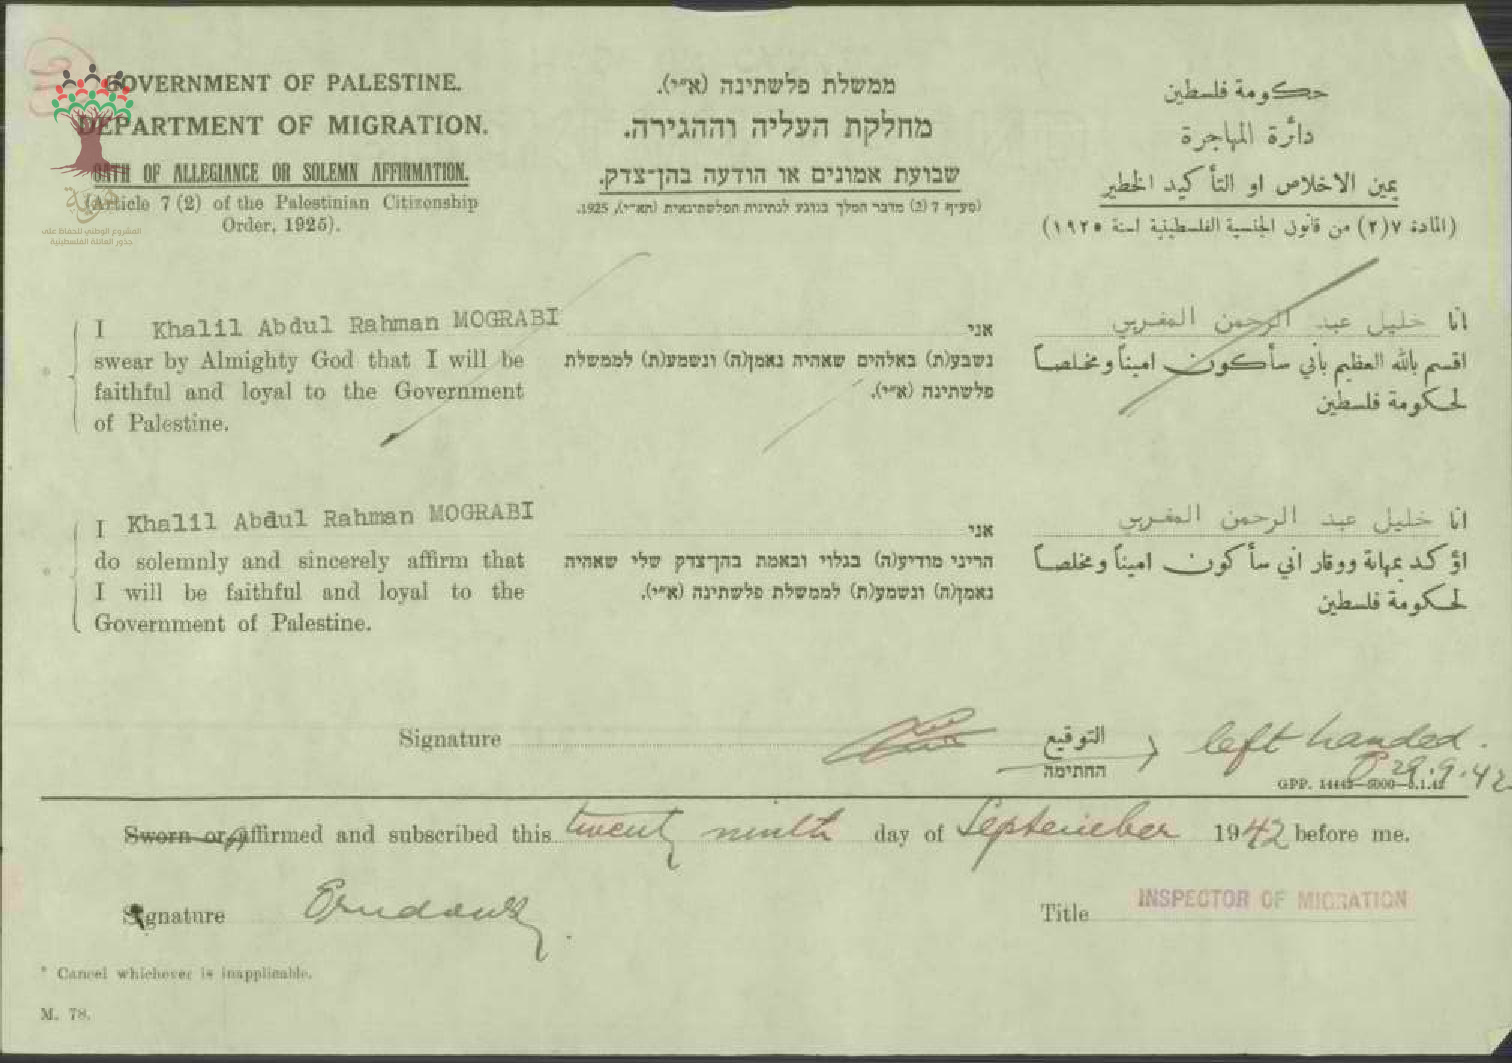 GOVERNMENT OF PALESTINE.
DEPARTMENT OF MIGRATION.
OATH OF ALLEGIANCE OR SOLEMN AFFIRMATION.
(Article 7 (2) of the Palestinian Citizenship
Order, 1925).
ממשלת פלשתינה (א״י).
מחלקת העליה וההגירה.
שבועת אמונים או הודעה בהן־צדק.
(סעיף 7 (2) מדבר המלך בנוגע לנתינות הפלשתינאית (תא״י), 1925.
حكومة فلسطين
دائرة المهاجرة
يمين الاخلاص او التأكيد الخطير
(المادة ٧(٢) من قانون الجنسية الفلسطينية لسنة ١٩٢٥)
هوية
المشروع الوطني للحفاظ على
جذور العائلة الفلسطينية
I Khalil Abdul Rahman MOGRABI
swear by Almighty God that I will be
faithful and loyal to the Government
of Palestine.
אני
נשבע(ת) באלהים שאהיה נאמן(ה) ונשמע(ת) לממשלת
פלשתינה (א״י).
انا خليل عبد الرحمن المغربي
اقسم بالله العظيم بأني سأكون اميناً ومخلصاً
لحكومة فلسطين
I Khalil Abdul Rahman MOGRABI
do solemnly and sincerely affirm that
I will be faithful and loyal to the
Government of Palestine.
אני
הריני מודיע(ה) בגלוי ובאמת בהן־צדק שלי שאהיה
נאמן(ה) ונשמע(ת) לממשלת פלשתינה (א״י).
انا خليل عبد الرحمن المغربي
اؤكد بمهابة ووقار اني سأكون اميناً ومخلصاً
لحكومة فلسطين
Signature
التوقيع
החתימה
left handed.
29.9.42
GPP. 14442—5000—5.1.42
Sworn or affirmed and subscribed this twenty ninth day of September 1942 before me.
Signature
Title INSPECTOR OF MIGRATION
* Cancel whichever is inapplicable.
M. 78.